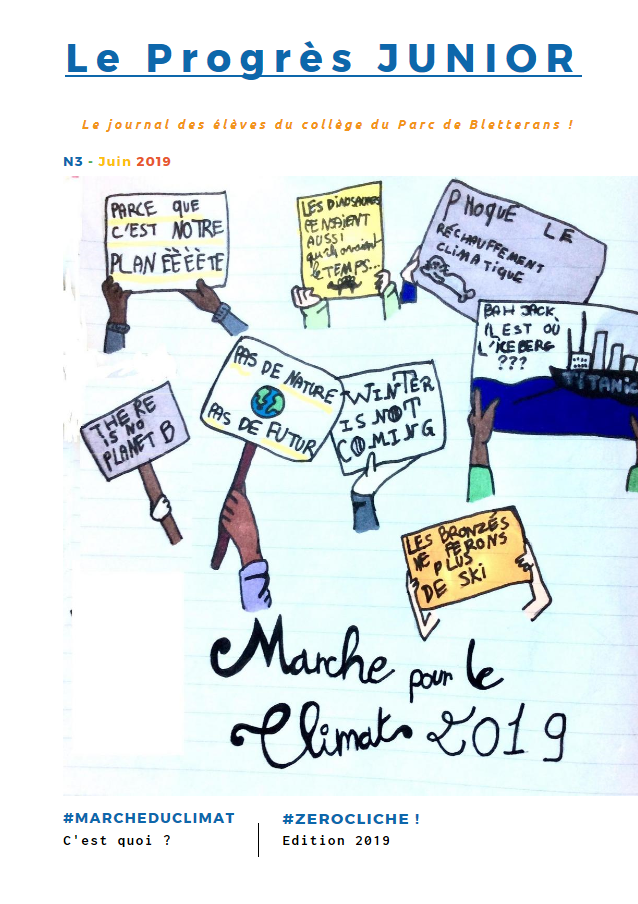 Le Progrès JUNIOR
Le journal des élèves du collège du Parc de Bletterans !
N3 - Juin 2019
PARCE QUE
C'EST NOTRE
PLANÈÈÈÈTE
LES DINOSAURES
PENSAIENT
AUSSI
qu'ils avaient
le TEMPS...
PHOQUE LE
RÉCHAUFFEMENT
CLIMATIQUE
BAH JACK,
IL EST OÙ
L'ICEBERG
???
TITANIC
PAS DE NATURE
PAS DE FUTUR
WINTER
IS NOT
COMING
THERE
IS NO
PLANET B
LES BRONZÉS
NE FERONS
PLUS
DE SKI
Marche pour le
Climat 2019
#MARCHEDUCLIMAT
C'est quoi ?
#ZEROCLICHE !
Edition 2019